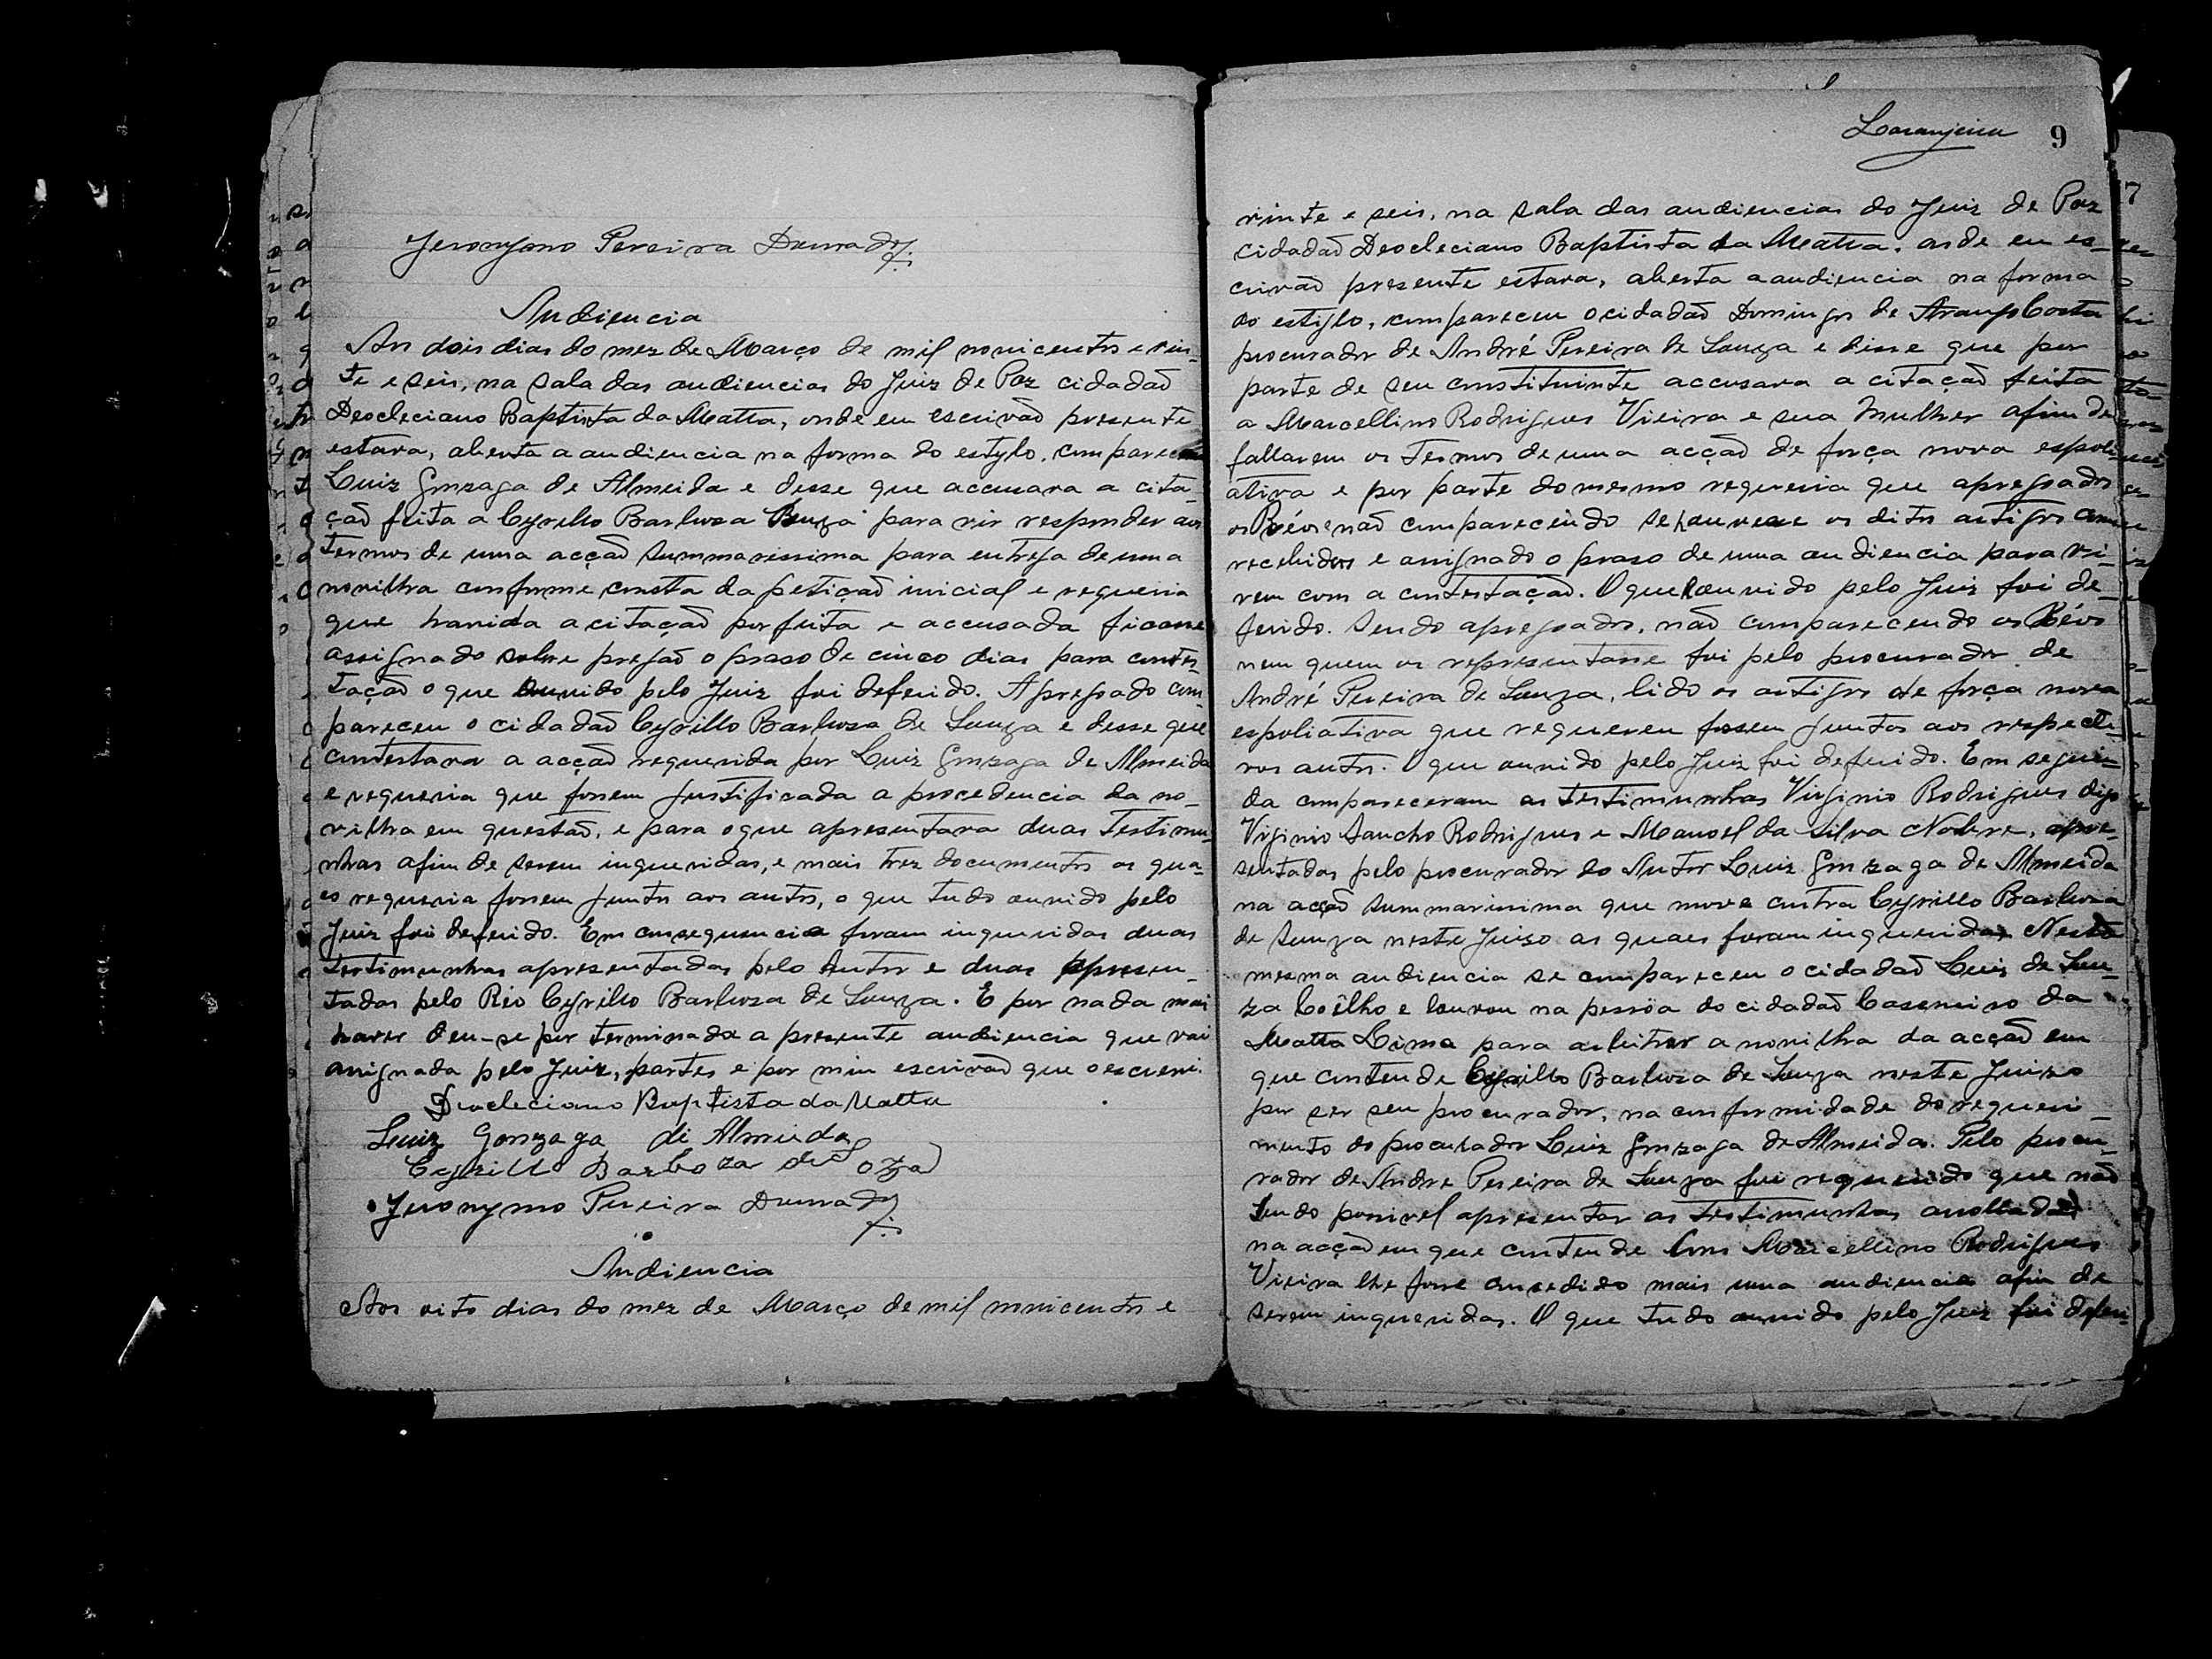 Jeronymo Pereira Dourado
Audiencia
Aos dois dias do mez de Março de mil novicentos e vin-
te e seis, na sala das audiencias do Juiz de Paz cidadaõ
Deocleciano Baptista da Matta, onde eu escrivaõ presente
estava, aberta a audiencia na forma do estylo, compareceu
Luiz Gonzaga de Almeida e desse que accusava a cita-
çaõ feita a Cyrillo Barboza Souza para vir responder aos
termos de uma acçaõ summarissima para entrega de uma
novilha conforme consta da petiçaõ inicial e requeria
que havida a citaçaõ por feita e accusada ficasse
assignado sobre pregaõ o praso de cinco dias para contes-
taçaõ o que ouvido pelo Juiz foi deferido. Apregoado com-
pareceu o cidadaõ Cyrillo Barboza de Souza e desse que
contestava a acçaõ requerida por Luiz Gonzaga de Almeida
e requeria que fossem justificada a procedencia da no-
vilha em questaõ, e para o que apresentava duas testimu-
nhas afim de serem inqueridas, e mais trez documentos os qua-
es requeria fossem juntos aos autos, o que tudo ouvido pelo
Juiz foi deferido. Em consequencia foram inqueridas duas
testimunhas apresentadas pelo Autor e duas apresen-
tadas pelo Réo Cyrillo Barboza de Souza. E por nada mais
haver deu-se por terminada a presente audiencia que vai
assignada pelo Juiz, partes e por mim escrivaõ que o escrevi.
Deocleciano Baptista da Matta
Luiz Gonzaga di Almeida
Cyrillo Barboza de Soza
Jeronymo Pereira Dourado
Audiencia
Aos oito dias do mez de Março de mil novicentos e
Laranjeira 9
vinte e seis, na sala das audiencias do Juiz de Paz
cidadaõ Deocleciano Baptista da Matta, onde eu es-
crivaõ presente estava, aberta a audiencia na forma
do estylo, compareceu o cidadaõ Domingos de Araujo Costa
procurador de André Pereira de Souza e disse que por
parte de seu constituinte accusava a citaçaõ feita
a Marcellino Rodrigues Vieira e sua mulher afim de
fallarem os termos de uma acçaõ de força nova espoli-
ativa e por parte do mesmo requeria que apregoados
os Réos e naõ comparecendo se houvesse os ditos artigos como
recebidos e assignado o praso de uma audiencia para vi-
rem com a contestaçaõ. O que ouvido pelo Juiz foi de-
ferido. Sendo apregoados, naõ comparecendo os Réos
nem quem os representasse foi pelo procurador de
André Pereira de Souza, lido os artigos de força nova
espoliativa que requereu fossem juntos aos respecti-
vos autos. O que ouvido pelo Juiz foi deferido. Em segui-
da compareceram as testimunhas Virginio Rodrigues digo
Virginio Sancho Rodrigues e Manoel da Silva Nobre, apre-
sentadas pelo procurador do Autor Luiz Gonzaga de Almeida
na acçaõ summarissima que move contra Cyrillo Barboza
de Souza neste Juizo as quaes foram inqueridas. Nesta
mesma audiencia se compareceu o cidadaõ Luiz de Sou-
za Coêlho e louvou na pessôa do cidadaõ Casemiro da
Matta Lima para arbitrar a novilha da acçaõ em
que contende Cyrillo Barboza de Souza neste Juizo
por ser seu procurador, na conformidade do requeri-
mento do procurador Luiz Gonzaga de Almeida. Pelo procu-
rador de Andre Pereira de Souza foi requerido que naõ
sendo possivel apresentar as testimunhas arolladas
na acçaõ em que contende com Marcellino Rodrigues
Vieira lhe fosse concedido mais uma audiencia afim de
serem inqueridas. O que tudo ouvido pelo Juiz foi deferi-